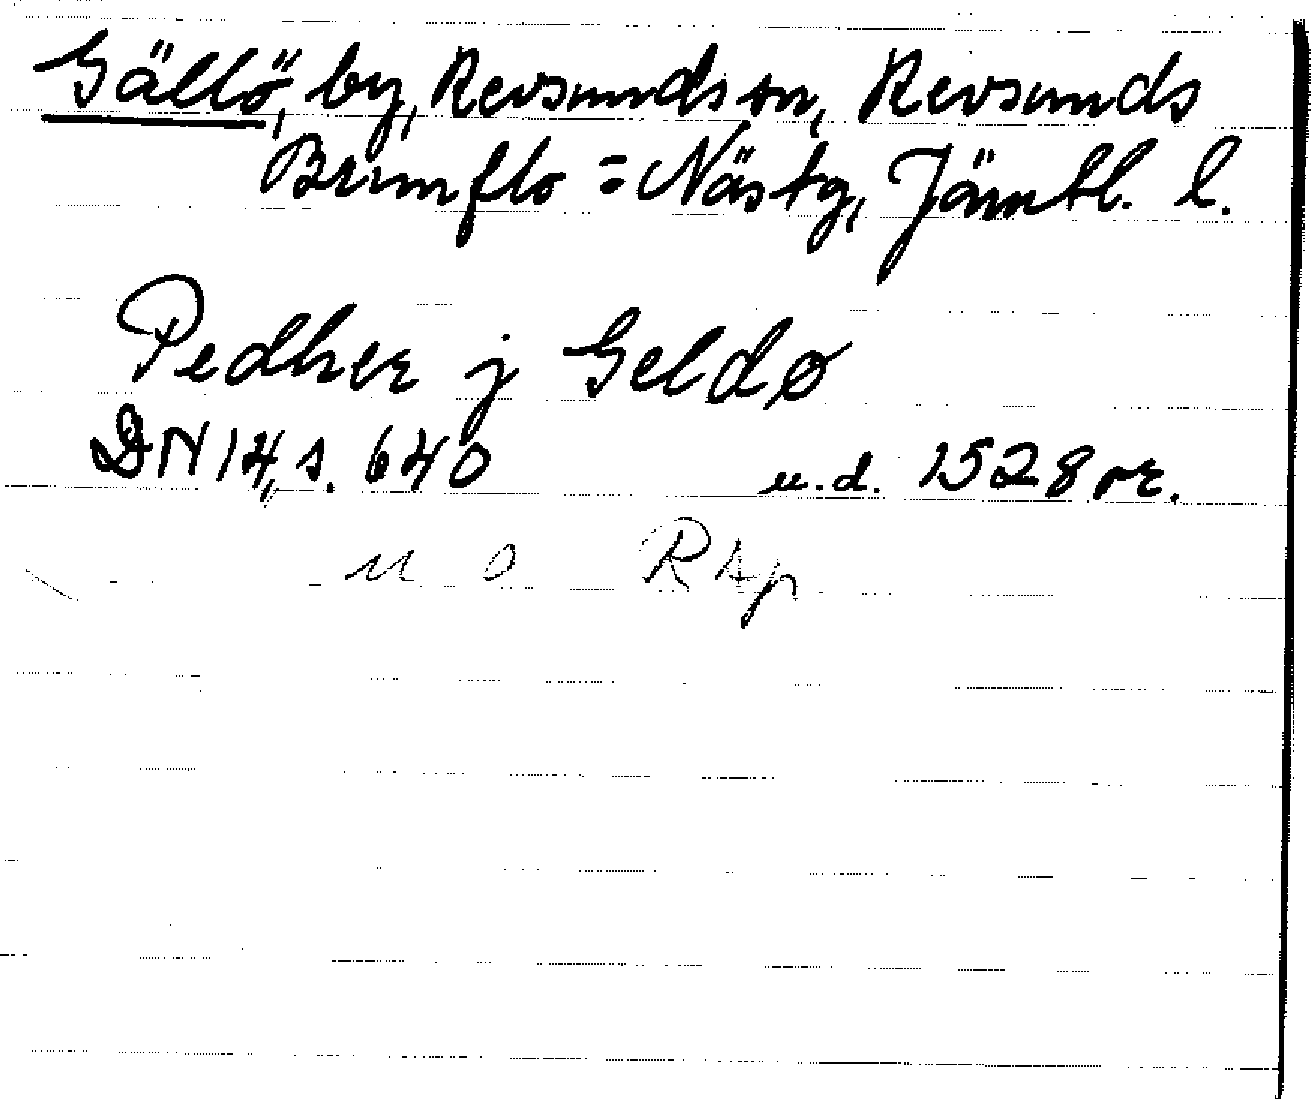 Gällö, by, Revsunds sn, Revsunds
Brunflo = Näs tg, Jämtl. l.
Pedher j Geldø
DN 14, s. 640 u.d. 1528 or.
u o Rsp